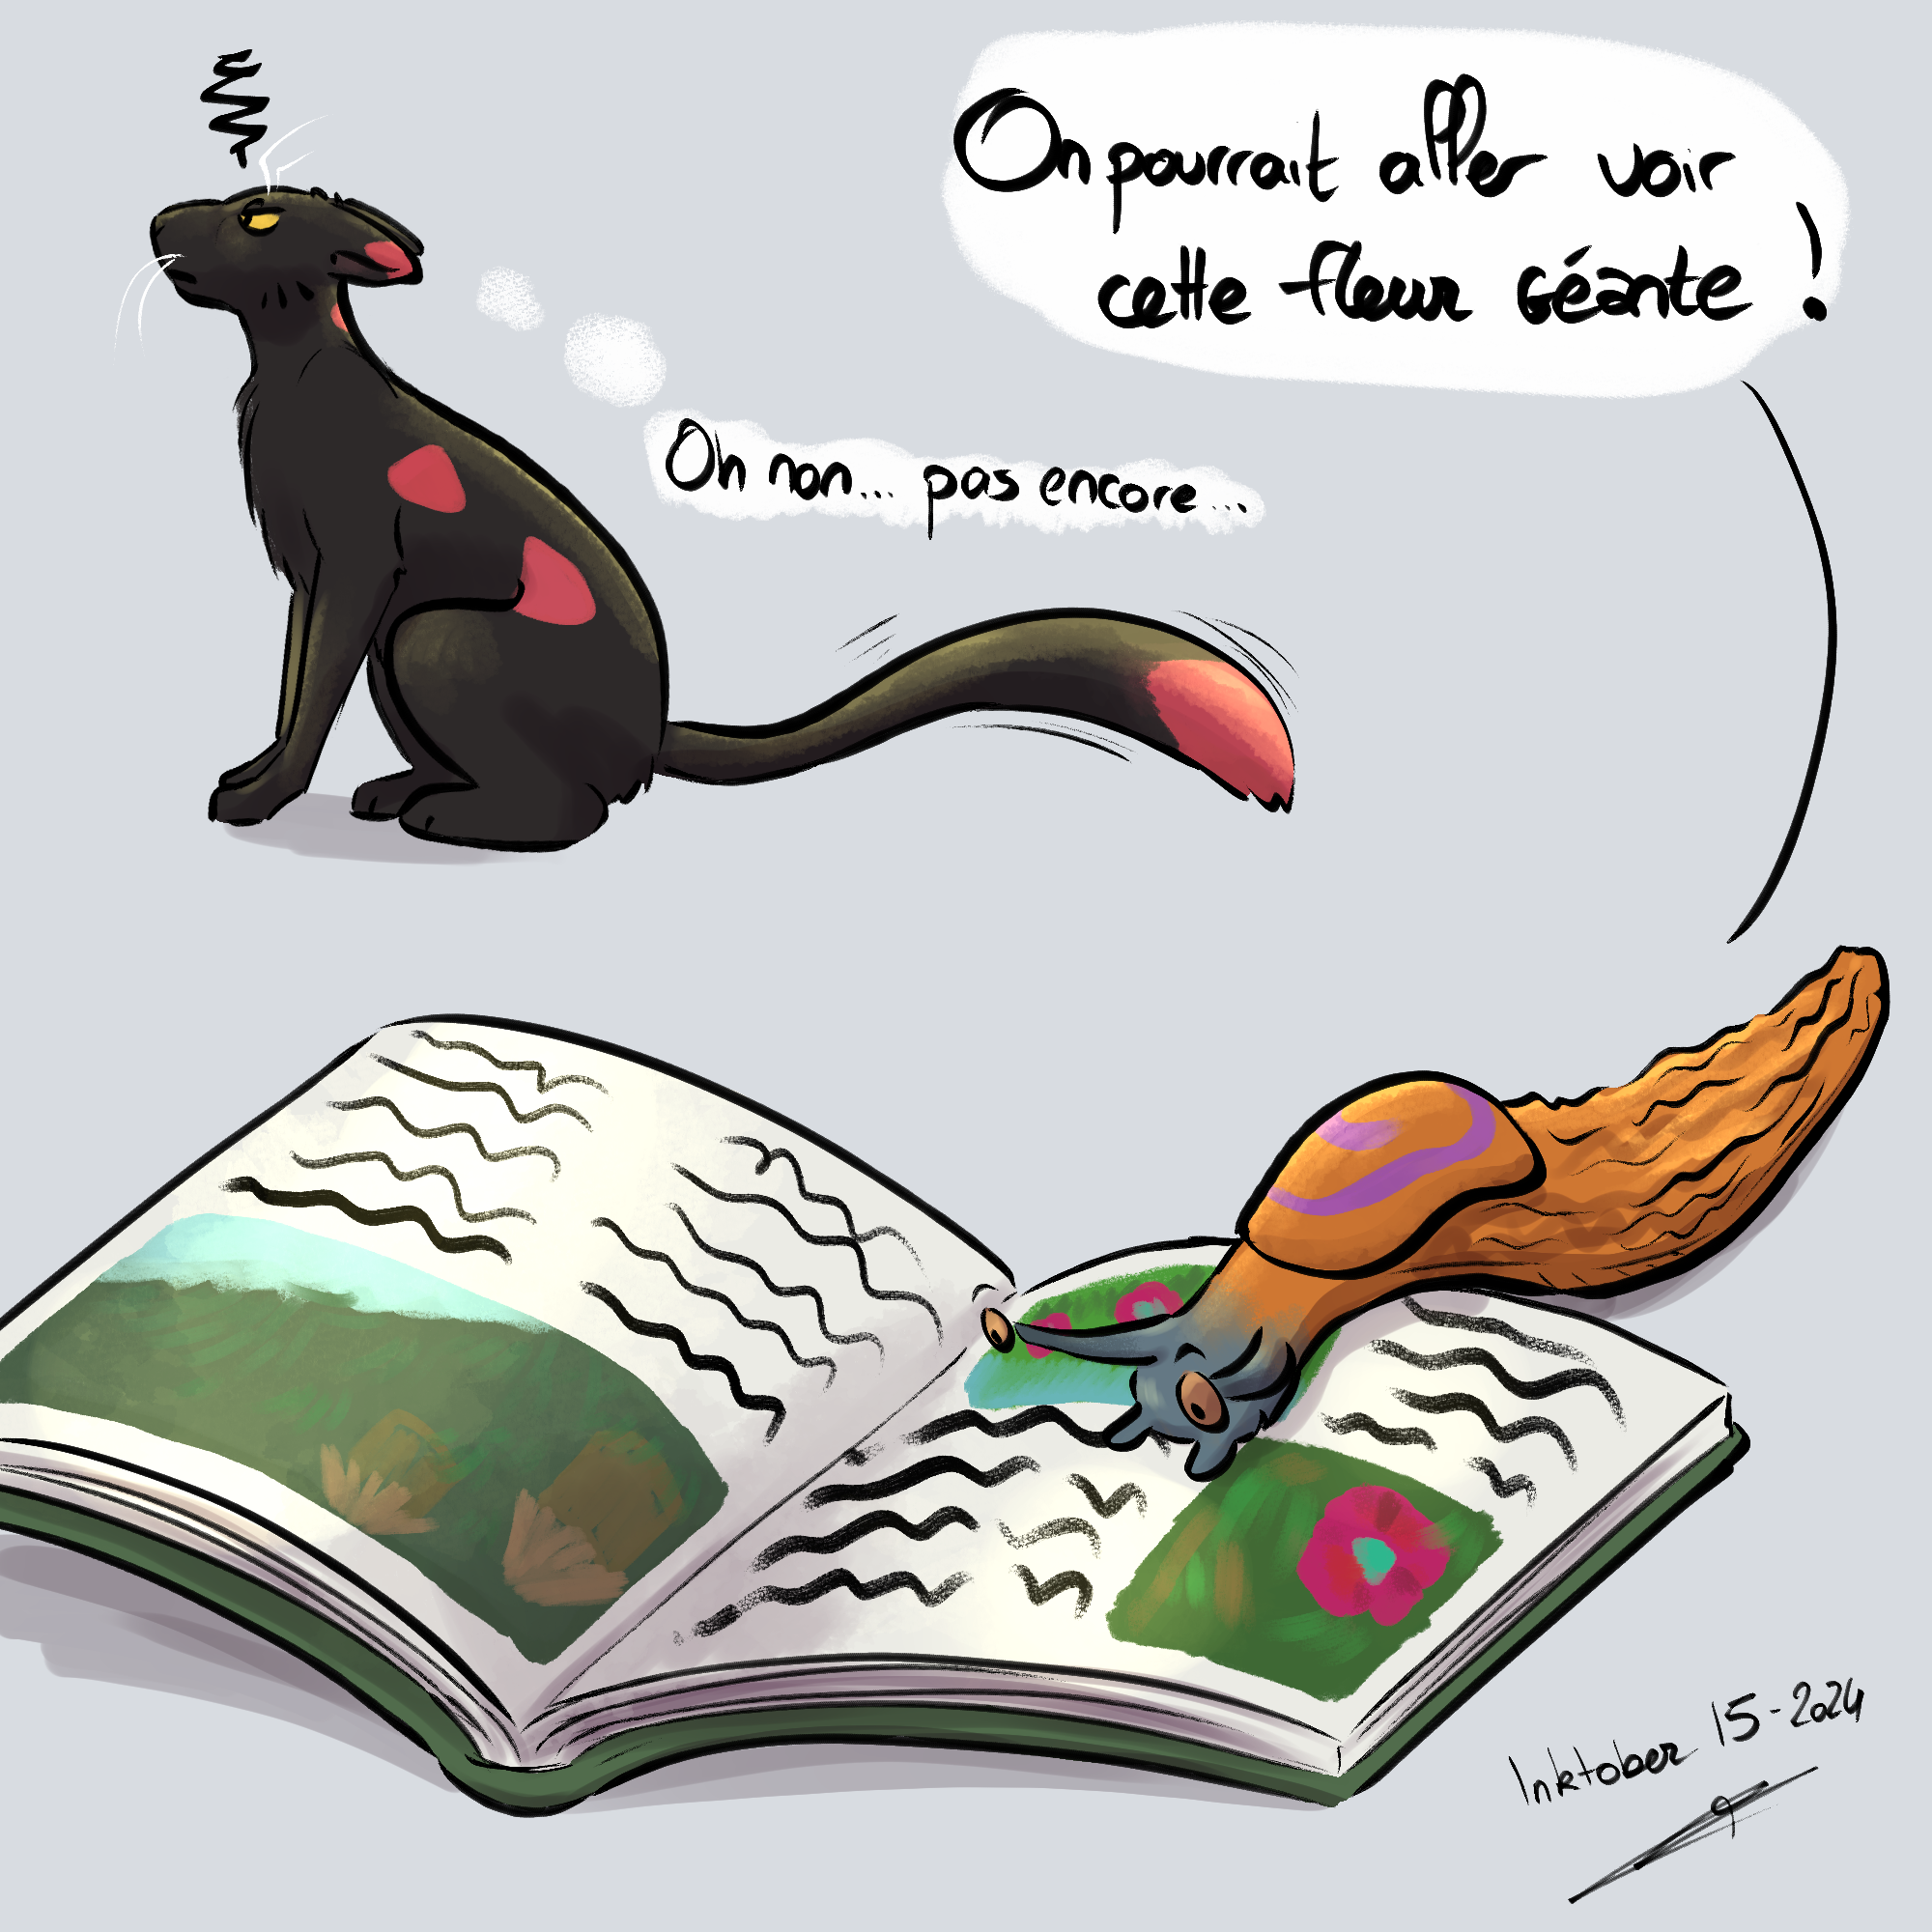 On pourrait aller voir
cette fleur géante !
Oh non... pas encore...
Inktober 15-2024